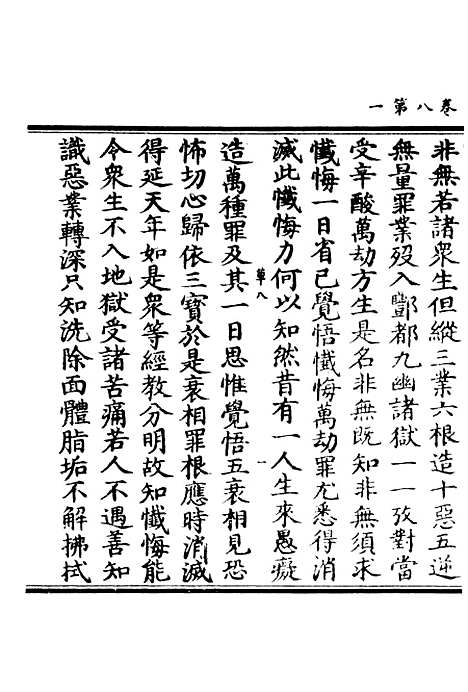 卷八第一
非無若諸衆生但縱三業六根造十惡五逆
無量罪業歿入酆都九幽諸獄一一攷對當
受辛酸萬劫方生是名非無既知非無須求
懺悔一日省已覺悟懺悔萬劫罪尤悉得消
滅此懺悔力何以知然昔有一人生來愚癡
草八 一
造萬種罪及其一日思惟覺悟五衰相見恐
怖切心歸依三寶於是衰相罪根應時消滅
得延天年如是衆等經教分明故知懺悔能
令衆生不入地獄受諸苦痛若人不遇善知
識惡業轉深只知洗除面體脂垢不解拂拭